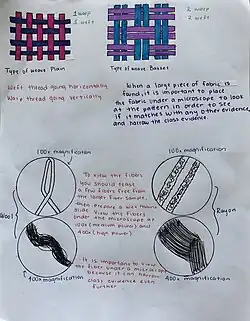 1 warp
1 weft
2 warp
2 weft
Type of weave: Plain
Type of weave: Basket
Weft thread going horizontally
Warp thread going vertically
When a large piece of fabric is
found, it is important to place
the fabric under a microscope to look
at the pattern in order to see
if it matches with any other evidence
and narrow the class evidence.
100x magnification
100x magnification
To view the fibers
you should tease
a few fibers free from
the larger fiber sample,
then prepare a wet mount
slide. View this fibers
under the microscope at
100x (medium power) and
400x (high power)
Wool
Rayon
400x magnification
400x magnification
It is important to view
the fiber under a microscope
because it can narrow
class evidence even
further